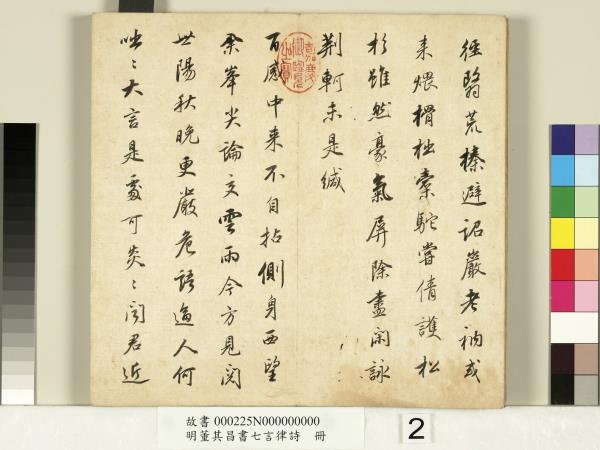 徑翳荒榛避詔巖老衲或
来煨榾柮橐駝嘗倩護松
杉雖然豪氣屏除盡閑詠
荆軻未是緘
百感中来不自拈側身西望
峯尖論文雲雨今方見閱
世陽秋晚更嚴危語逼人何
咄〻大言是處可炎〻聞君近
故書 000225N000000000
明董其昌書七言律詩 冊
2